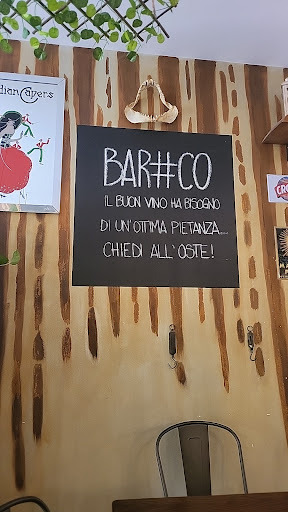 dian Capers
BAR#CO
IL BUON VINO HA BISOGNO
DI UN'OTTIMA PIETANZA....
CHIEDI ALL'OSTE!